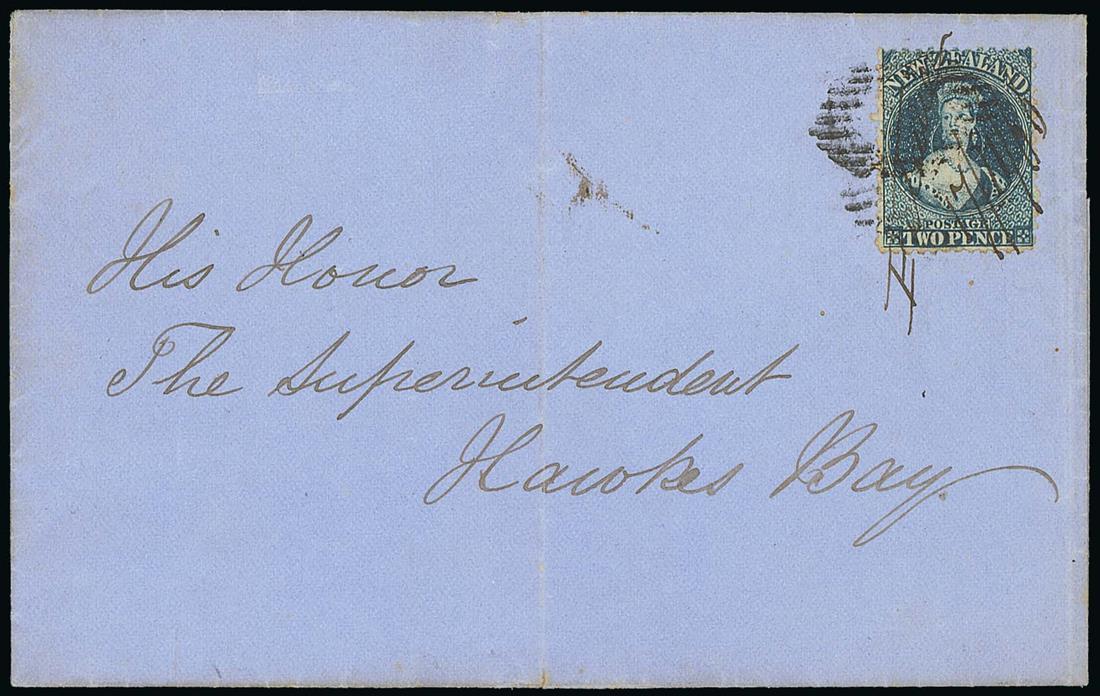 NEW ZEALAND
POSTAGE
TWO PENCE
His Honor
The Superintendent
Hawkes Bay